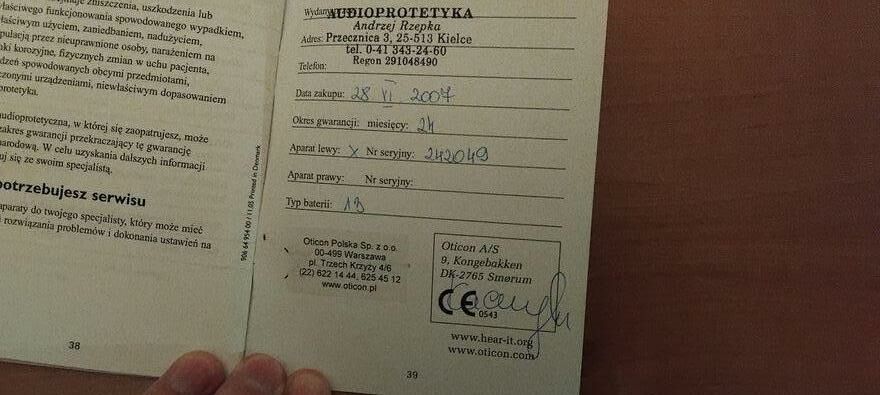 zniszczenia, uszkodzenia lub
właściwego funkcjonowania spowodowanego wypadkiem,
właściwym użyciem, zaniedbaniem, nadużyciem,
pulacją przez nieuprawnione osoby, narażeniem na
ki korozyjne, fizycznych zmian w uchu pacjenta,
dzeń spowodowanych obcymi przedmiotami,
czonymi urządzeniami, niewłaściwym dopasowaniem
protetyka.
audioprotetyczna, w której się zaopatrujesz, może
zakres gwarancji przekraczający tę gwarancję
narodową. W celu uzyskania dalszych informacji
uj się ze swoim specjalistą.
potrzebujesz serwisu
aparaty do twojego specjalisty, który może mieć
rozwiązania problemów i dokonania ustawień na
38
906 64 954 00 / 11.05 Printed in Denmark
AUDIOPROTETYKA
Andrzej Rzepka
Adres: Przecznica 3, 25-513 Kielce
tel. 0-41 343-24-60
Telefon: Regon 291048490
Data zakupu: 28 VI 2007
Okres gwarancji: miesięcy: 24
Aparat lewy: X Nr seryjny: 242049
Aparat prawy: Nr seryjny:
Typ baterii: 13
Oticon Polska Sp. z o.o.
00-499 Warszawa
pl. Trzech Krzyży 4/6
(22) 622 14 44, 625 45 12
www.oticon.pl
Oticon A/S
9, Kongebakken
DK-2765 Smørum
CE 0543
www.hear-it.org
www.oticon.com
39